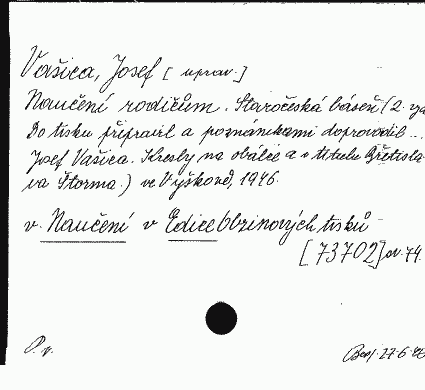 Vašica, Josef [uprav.]
Naučení rodičům. Staročeská báseň (2. vyd.
Do tisku připravil a poznámkami doprovodil ...
Josef Vašica. Kresby na obálce a v titulu Břetisla-
va Štorma.) ve Vyškově, 1946.
v. Naučení v Edice Obzinových tisků
[73702] 44.
P. v.
27-6-46